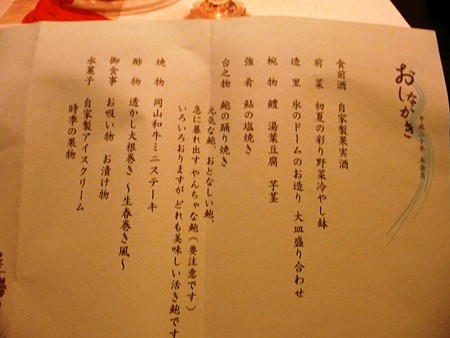 おしながき
平成二十年水無月
食前酒 自家製果実酒
前菜 初夏の彩り野菜冷やし鉢
造里 氷のドームのお造り 大皿盛り合わせ
椀物 鱧 湯葉豆腐 芋茎
強肴 鮎の塩焼き
台之物 鮑の踊り焼き
元気な鮑、おとなしい鮑、
急に暴れ出すやんちゃな鮑(要注意です)
いろいろおりますが どれも美味しい活き鮑です
焼物 岡山和牛ミニステーキ
酢物 透かし大根巻き 〜生春巻き風〜
御食事 お吸い物 お漬け物
水菓子 自家製アイスクリーム
時季の果物